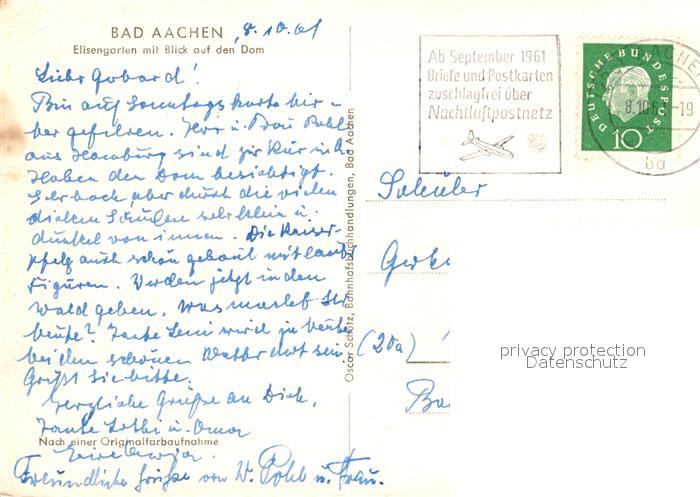 BAD AACHEN 8.10.61
Elisengarten mit Blick auf den Dom
Lieber Gebard!
Bin auf Sonntagskarte hier-
her gefahren. Herr u. Frau Pohl
aus Hamburg sind zur Kur
Haben den Dom besichtigt.
Sehr hoch aber durch die vielen
dicken Säulen sehr klein u.
dunkel von innen. Die Kaiser-
pfalz auch schön gebaut mit
Figuren. Werden jetzt in den
Wald gehen. Was machst Du
heute? Tante Leni wird zu Hause
bei dem schönen Wetter dort sein
Grüßt Sie bitte.
Herzliche Grüße an Dich,
Tante u. Oma
Nach einer Originalfarbaufnahme
Freundliche Grüße von W. Pohl u. Frau.
Oscar Schütz, Bahnhofsbuchhandlungen, Bad Aachen
Ab September 1961
Briefe und Postkarten
zuschlagfrei über
Nachtluftpostnetz
DEUTSCHE BUNDESPOST
10
AACHEN
8.10.61-19
Schüler
(20a)
privacy protection
Datenschutz